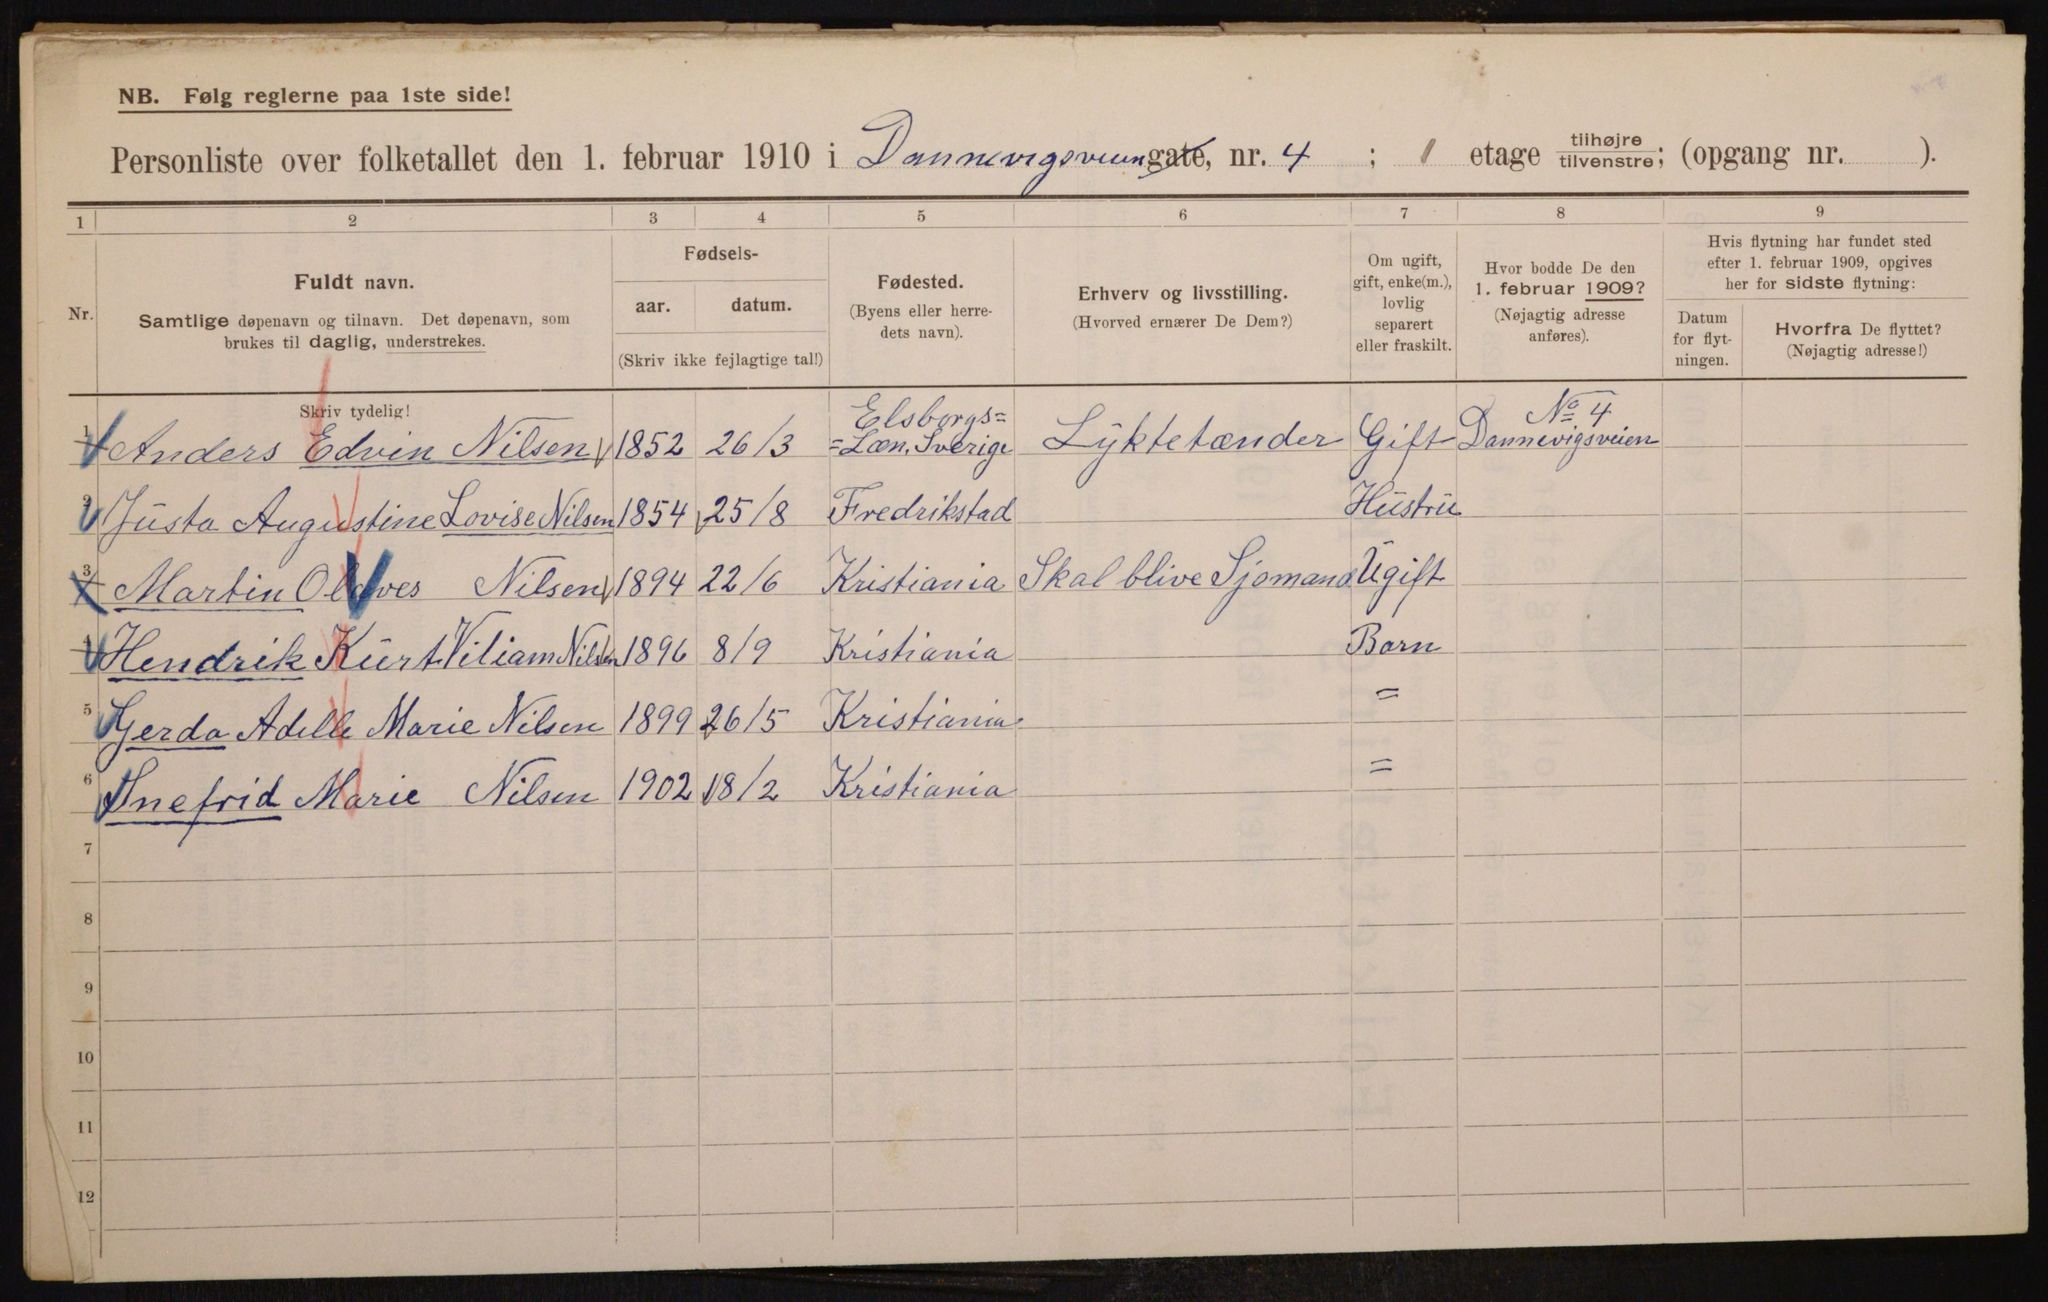 NB. Følg reglerne paa 1ste side!
Personliste over folketallet den 1. februar 1910 i Dannevigsveien gate, nr. 4 ; 1 etage tilhøjre tilvenstre; (opgang nr. ).
1 2 3 4 5 6 7 8 9
Nr.
Fuldt navn.
Samtlige døpenavn og tilnavn. Det døpenavn, som
brukes til daglig, understrekes.
Fødsels-
aar. datum.
(Skriv ikke fejlagtige tal!)
Fødested.
(Byens eller herre-
dets navn).
Erhverv og livsstilling.
(Hvorved ernærer De Dem?)
Om ugift,
gift, enke(m.),
lovlig
separert
eller fraskilt.
Hvor bodde De den
1. februar 1909?
(Nøjagtig adresse
anføres).
Hvis flytning har fundet sted
efter 1. februar 1909, opgives
her for sidste flytning:
Datum
for flyt-
ningen.
Hvorfra De flyttet?
(Nøjagtig adresse!)
Skriv tydelig!
Elsborgs= No 4
1 Anders Edvin Nilsen 1852 26/3 =Læn, Sverige Lyktetænder Gift Dannevigsveien
2 Justa Augustine Lovise Nilsen 1854 25/8 Fredrikstad Hustru
3 Martin Nilsen 1894 22/6 Kristiania Skal blive Sjomand Ugift
4 Hendrik Kurt Viliam Nilsen 1896 8/9 Kristiania Barn
5 Gerda Adelle Marie Nilsen 1899 26/5 Kristiania =
6 Snefrid Marie Nilsen 1902 18/2 Kristiania =
7
8
9
10
11
12